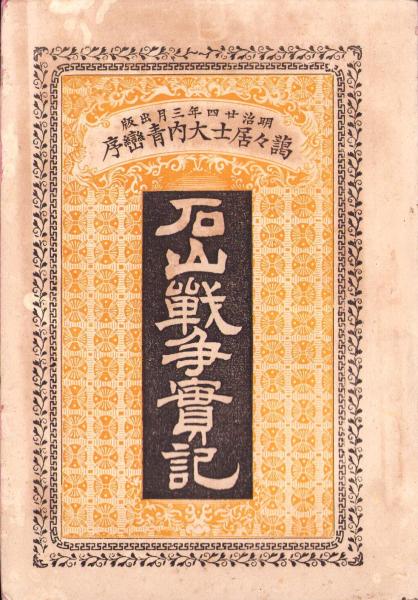 明治廿四年三月出版
藹々居士大内青巒序
石山戰争實記